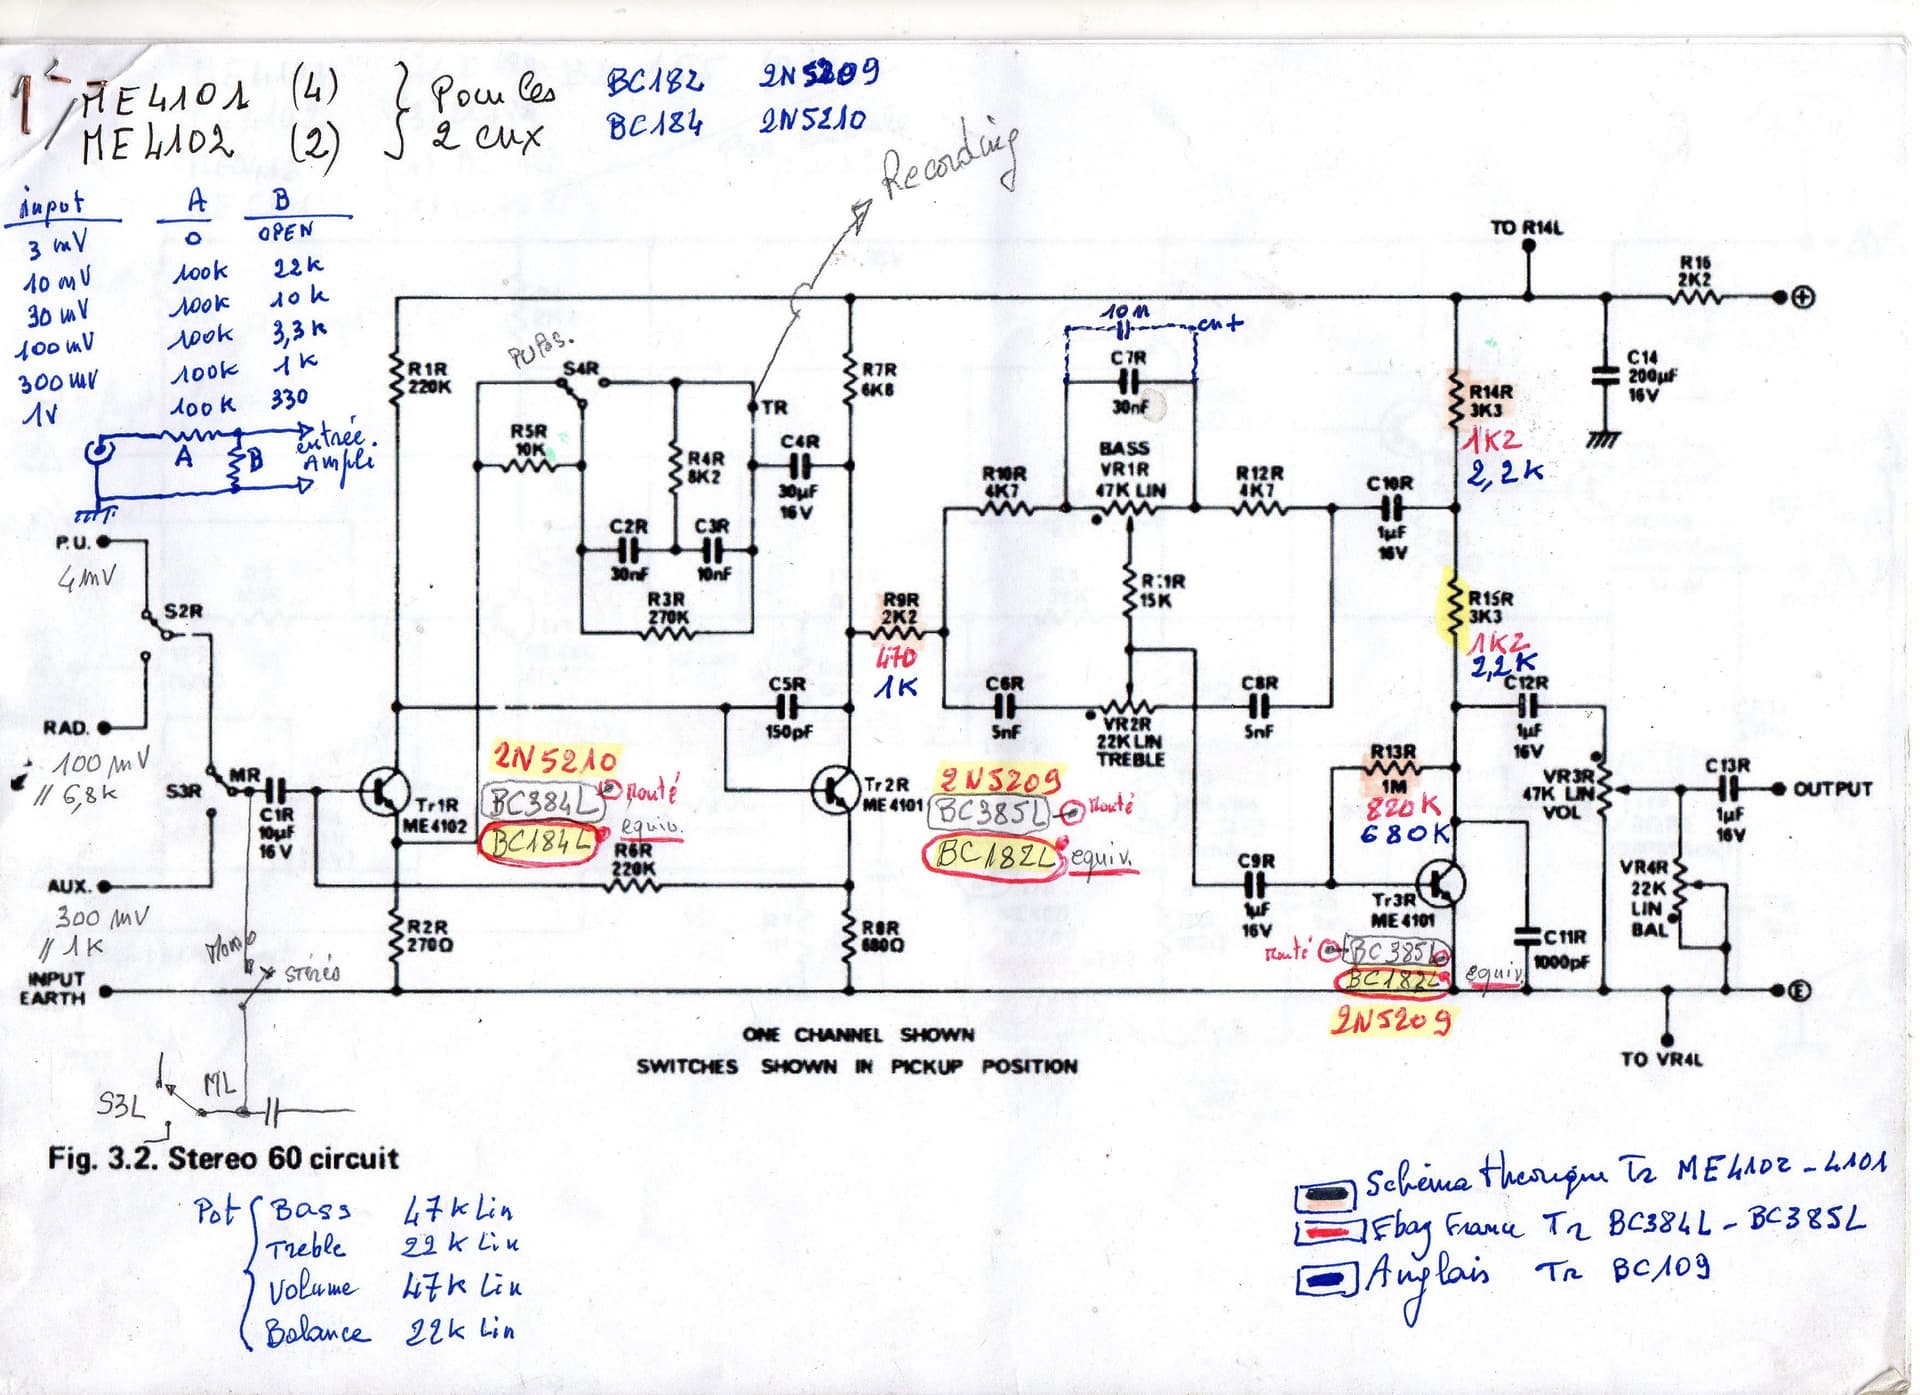 1
ME4101 (4) } Pour les BC182 2N5209
ME4102 (2) 2 cux BC184 2N5210
Recording
input A B
3 mV 0 OPEN
10 mV 100k 22k
30 mV 100k 10k
100 mV 100k 3,3k
300 mV 100k 1k
1V 100k 330
A B entrée.
Ampli
TO R14L
R16
2K2
+
10 n
en +
C7R
30nF
C14
200µF
16V
R1R
220K
S4R
TR
R7R
6K8
R5R
10K
R4R
8K2
C4R
30µF
16V
R14R
3K3
1K2
2,2K
R10R
4K7
BASS
VR1R
47K LIN
R12R
4K7
C10R
1µF
16V
C2R
30nF
C3R
10nF
P.U.
4mV
S2R
R3R
270K
R9R
2K2
470
1K
R11R
15K
R15R
3K3
1K2
2,2K
RAD.
100 mV
// 6,8k
C5R
150pF
C6R
5nF
VR2R
22K LIN
TREBLE
C8R
5nF
C12R
1µF
16V
S3R
MR
C1R
10µF
16V
Tr1R
ME4102
2N5210
BC384L Routé
BC184L equiv.
R6R
220K
Tr2R
ME4101
2N5209
BC385L Routé
BC182L equiv.
R13R
1M
820K
680K
VR3R
47K LIN
VOL
C13R
1µF
16V
OUTPUT
AUX.
300 mV
// 1K
Mono
Stéréo
R2R
270Ω
R8R
680Ω
C9R
1µF
16V
Tr3R
ME4101
Routé BC385L
BC182L equiv.
2N5209
C11R
1000pF
VR4R
22K
LIN
BAL
INPUT
EARTH
E
ONE CHANNEL SHOWN
SWITCHES SHOWN IN PICKUP POSITION
TO VR4L
S3L ML
Fig. 3.2. Stereo 60 circuit
Pot { Bass 47k Lin
Treble 22k Lin
Volume 47k Lin
Balance 22k Lin
Schéma théorique Tr ME4102 - 4101
Ebay France Tr BC384L - BC385L
Anglais Tr BC109